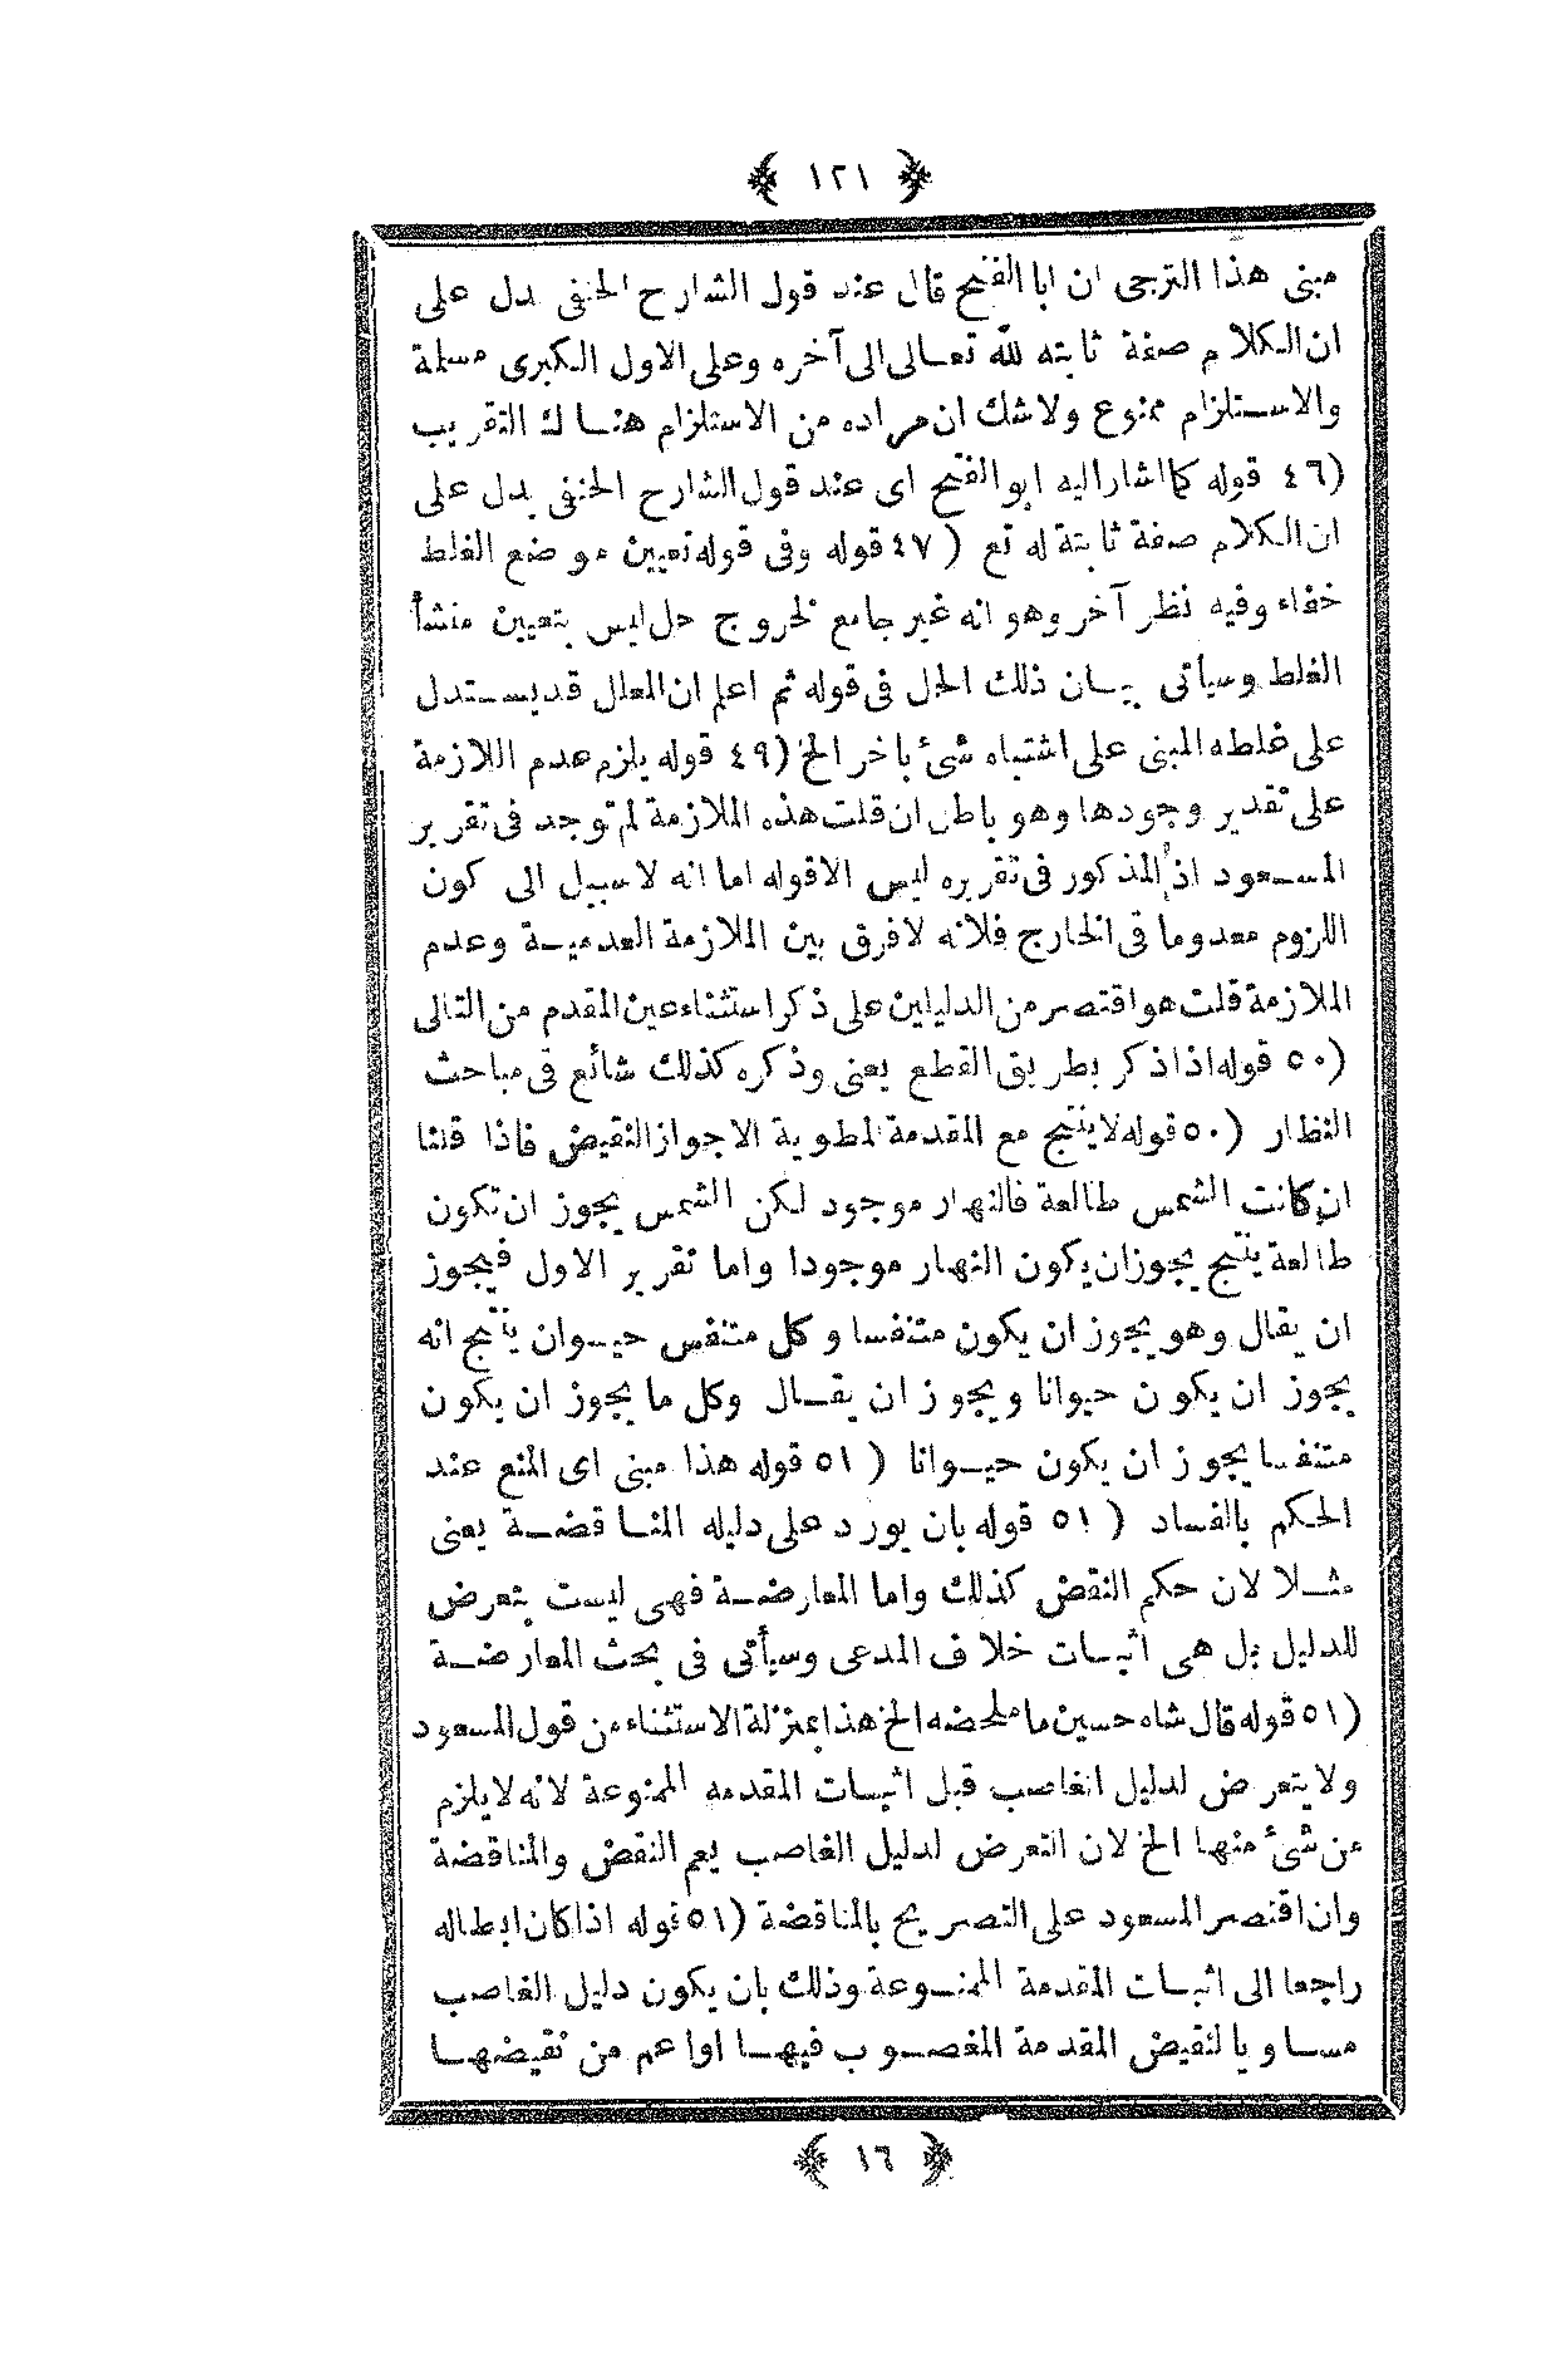 ﴿ ١٢١ ﴾
مبنى هذا الترجى ان ابا الفتح قال عند قول الشارح الحنفى يدل على
ان الكلام صفة ثابته لله تعالى الى آخره وعلى الاول الكبرى مسلمة
والاستلزام ممنوع ولا شك ان مراده من الاستلزام هناك التقريب
(٤٦ قوله كما اشار اليه ابو الفتح اى عند قول الشارح الحنفى يدل على
ان الكلام صفة ثابتة له تع (٤٧ قوله وفى قوله تعيين موضع الغلط
خفاء وفيه نظر آخر وهو انه غير جامع لخروج حل ليس بتعيين منشأ
الغلط وسيأتى بيان ذلك الحل فى قوله ثم اعلم ان المعلل قد يستدل
على غلطه المبنى على اشتباه شئ باخر الخ (٤٩ قوله يلزم عدم اللازمة
على تقدير وجودها وهو باطل ان قلت هذه الملازمة لم توجد فى تقرير
المسعود اذ المذكور فى تقريره ليس الا قوله اما انه لا سبيل الى كون
اللزوم معدوما فى الخارج فلانه لا فرق بين الملازمة العدمية وعدم
الملازمة قلت هو اقتصر من الدليلين على ذكر استثناء عين المقدم من التالى
(٥٠ قوله اذا ذكر بطريق القطع يعنى وذكره كذلك شائع فى مباحث
النظار (٥٠ قوله لا ينتج مع المقدمة المطوية الا جواز النقيض فاذا قلنا
ان كانت الشمس طالعة فالنهار موجود لكن الشمس يجوز ان تكون
طالعة ينتج يجوز ان يكون النهار موجودا واما تقرير الاول فيجوز
ان يقال وهو يجوز ان يكون متنفسا وكل متنفس حيوان ينتج انه
يجوز ان يكون حيوانا ويجوز ان يقال وكل ما يجوز ان يكون
متنفسا يجوز ان يكون حيوانا (٥١ قوله هذا مبنى اى المنع عند
الحكم بالفساد (٥١ قوله بان يورد على دليله المناقضة يعنى
مثلا لان حكم النقض كذلك واما المعارضة فهى ليست بتعرض
للدليل بل هى اثبات خلاف المدعى وسيأتى فى بحث المعارضة
(٥١ قوله قال شاه حسين ما ملخصه الخ هذا بمنزلة الاستثناء من قول المسعود
ولا يتعرض لدليل الغاصب قبل اثبات المقدمه الممنوعة لانه لا يلزم
من شئ منها الخ لان التعرض لدليل الغاصب يعم النقض والمناقضة
وان اقتصر المسعود على التصريح بالمناقضة (٥١ قوله اذا كان ابطاله
راجعا الى اثبات المقدمة الممنوعة وذلك بان يكون دليل الغاصب
مساويا لنقيض المقدمة المغصوب فيها او اعم من نقيضها
﴿ ١٦ ﴾